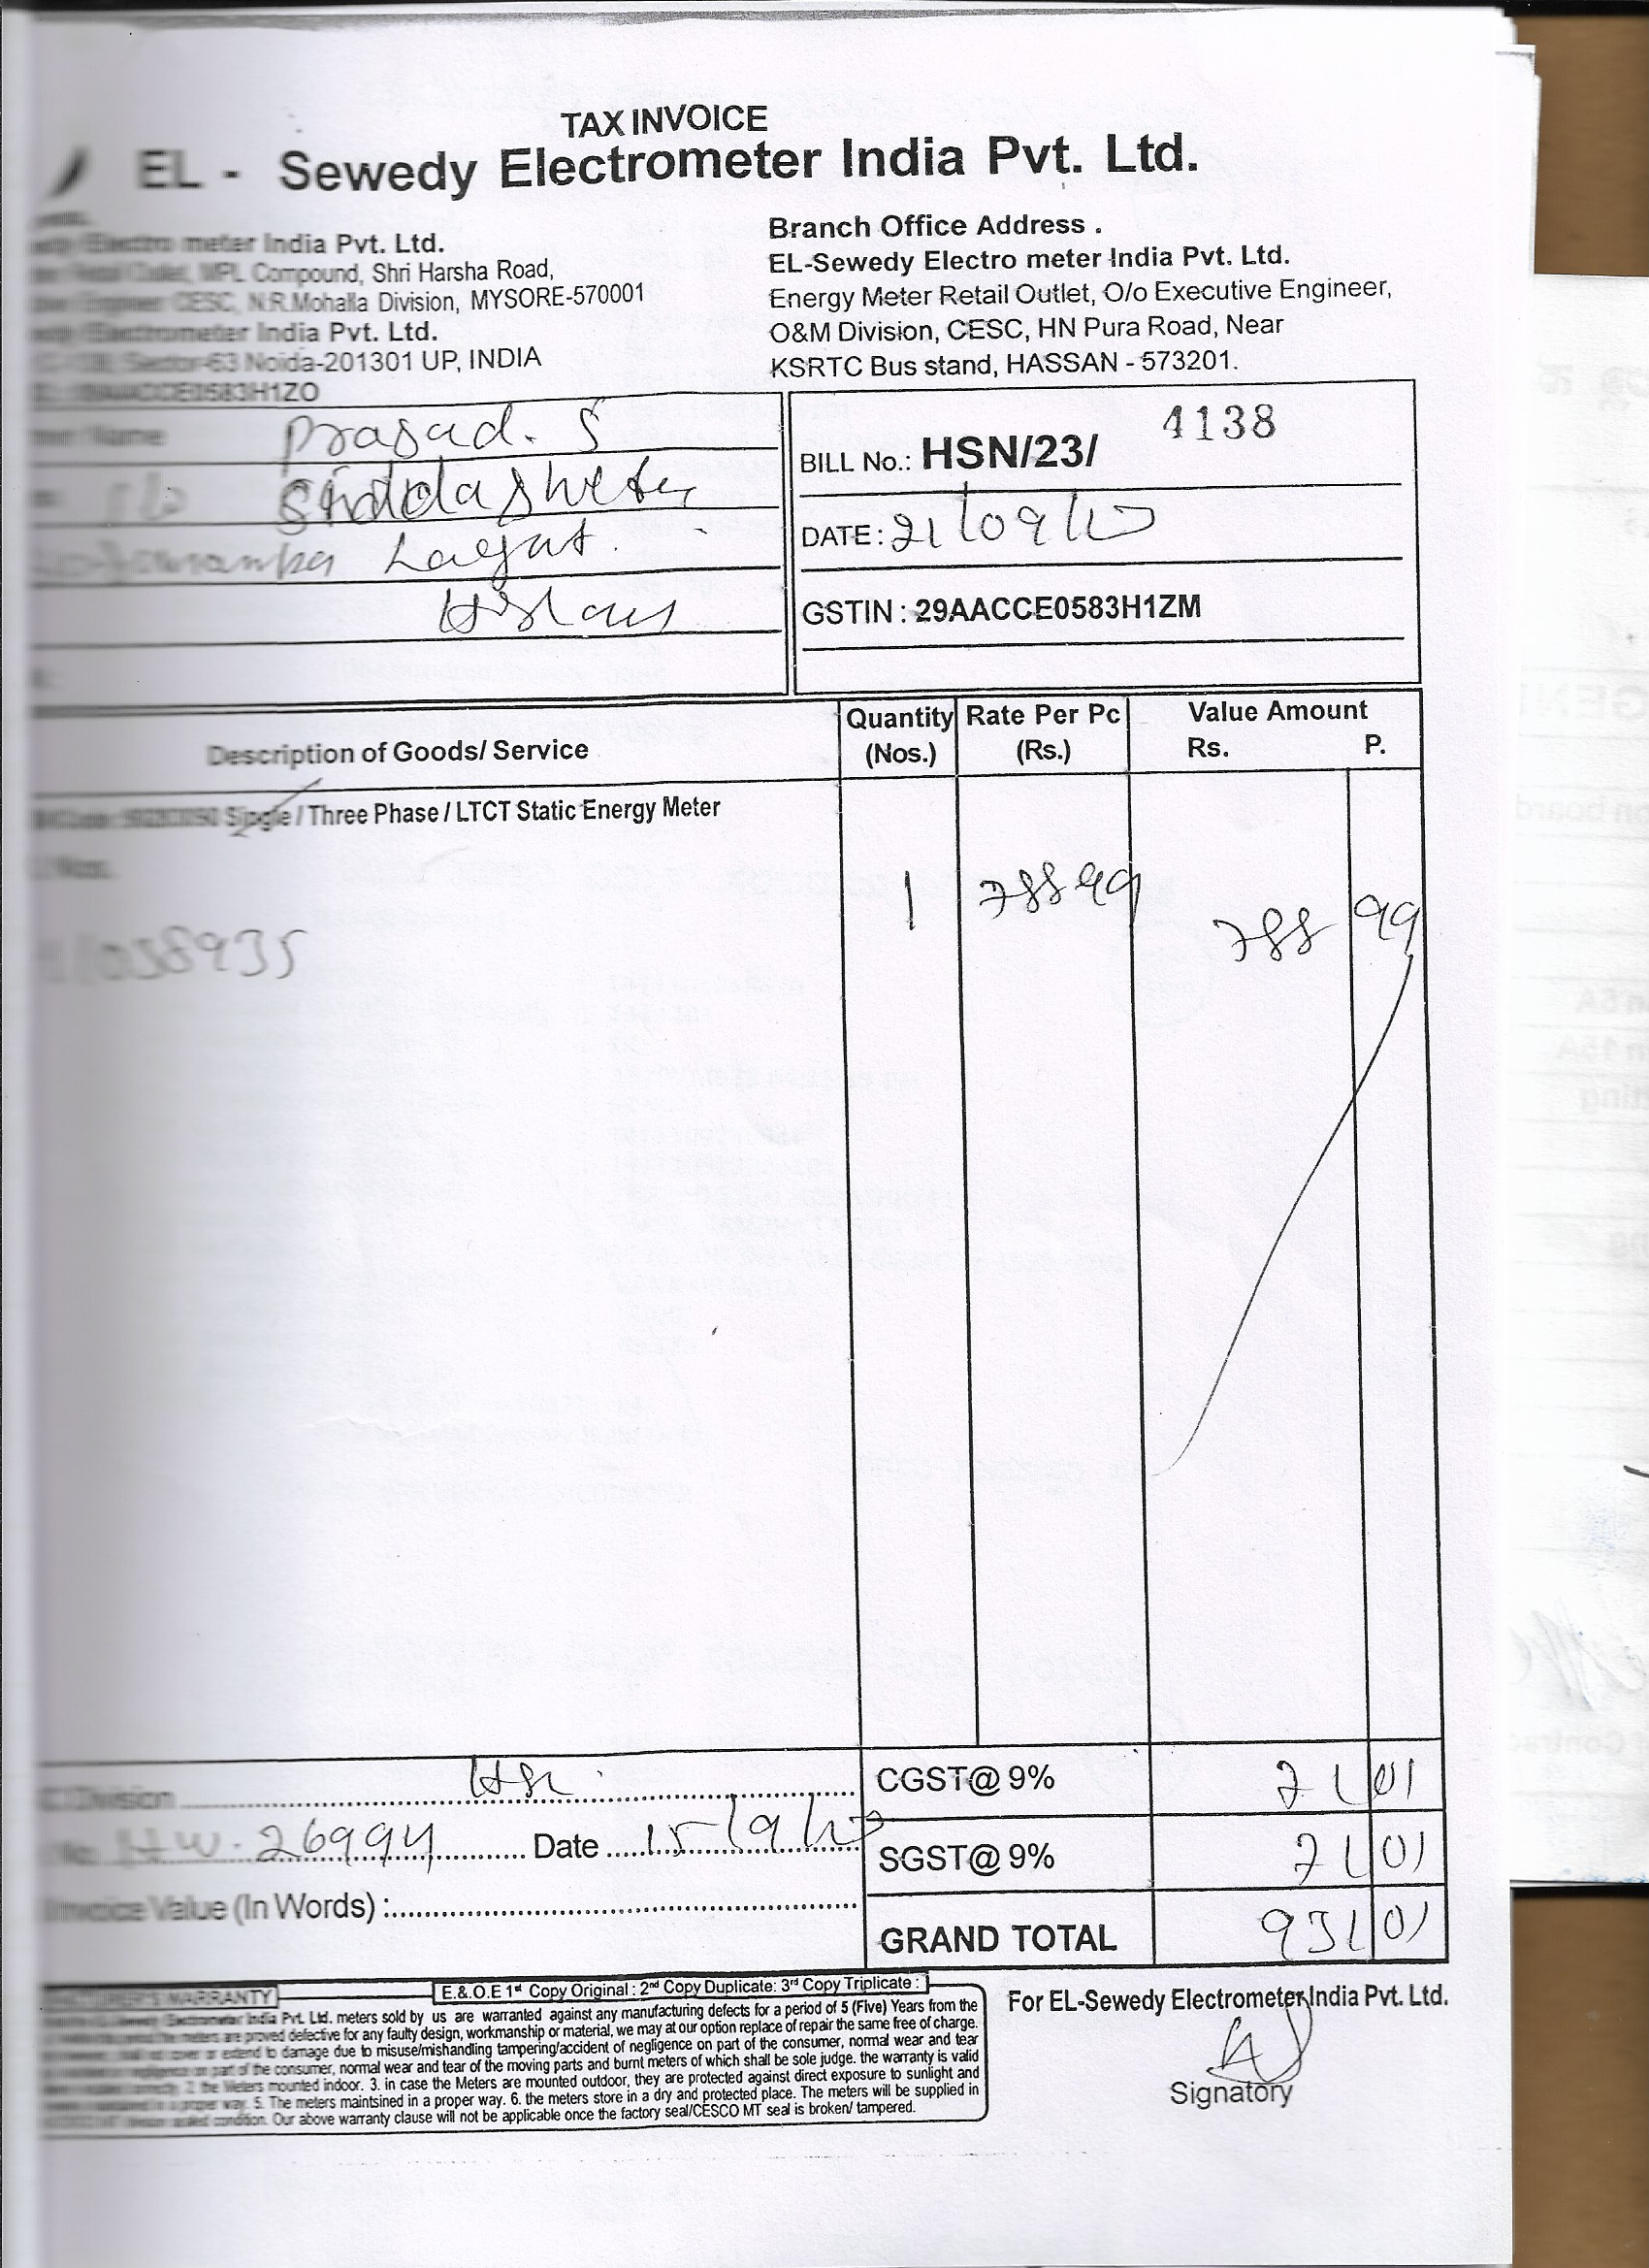 TAX INVOICE
EL - Sewedy Electrometer India Pvt. Ltd.
Electro meter India Pvt. Ltd.
Compound, Shri Harsha Road,
Engineer CESC, N.R.Mohalla Division, MYSORE-570001
Electrometer India Pvt. Ltd.
Sector-63 Noida-201301 UP, INDIA
Branch Office Address .
EL-Sewedy Electro meter India Pvt. Ltd.
Energy Meter Retail Outlet, O/o Executive Engineer,
O&M Division, CESC, HN Pura Road, Near
KSRTC Bus stand, HASSAN - 573201.
Name Prasad. S
Layout.
BILL No.: HSN/23/ 4138
DATE: 21/09/17
GSTIN : 29AACCE0583H1ZM
Description of Goods/ Service Quantity (Nos.) Rate Per Pc (Rs.) Value Amount Rs. P.
Single / Three Phase / LTCT Static Energy Meter
Nos.
1 788 99 788 99
Division Hsn CGST@ 9% 71 01
No. HW. 26994 Date 15/9/17 SGST@ 9% 71 01
Invoice Value (In Words) : GRAND TOTAL 931 01
E.&.O.E 1st Copy Original : 2nd Copy Duplicate: 3rd Copy Triplicate :
WARRANTY
Electrometer India Pvt. Ltd. meters sold by us are warranted against any manufacturing defects for a period of 5 (Five) Years from the
the meters are proved defective for any faulty design, workmanship or material, we may at our option replace of repair the same free of charge.
or extend to damage due to misuse/mishandling tampering/accident of negligence on part of the consumer, normal wear and tear
part of the consumer, normal wear and tear of the moving parts and burnt meters of which shall be sole judge. the warranty is valid
2. the Meters mounted indoor. 3. in case the Meters are mounted outdoor, they are protected against direct exposure to sunlight and
in a proper way. 5. The meters maintsined in a proper way. 6. the meters store in a dry and protected place. The meters will be supplied in
sealed condition. Our above warranty clause will not be applicable once the factory seal/CESCO MT seal is broken/ tampered.
For EL-Sewedy Electrometer India Pvt. Ltd.
Signatory